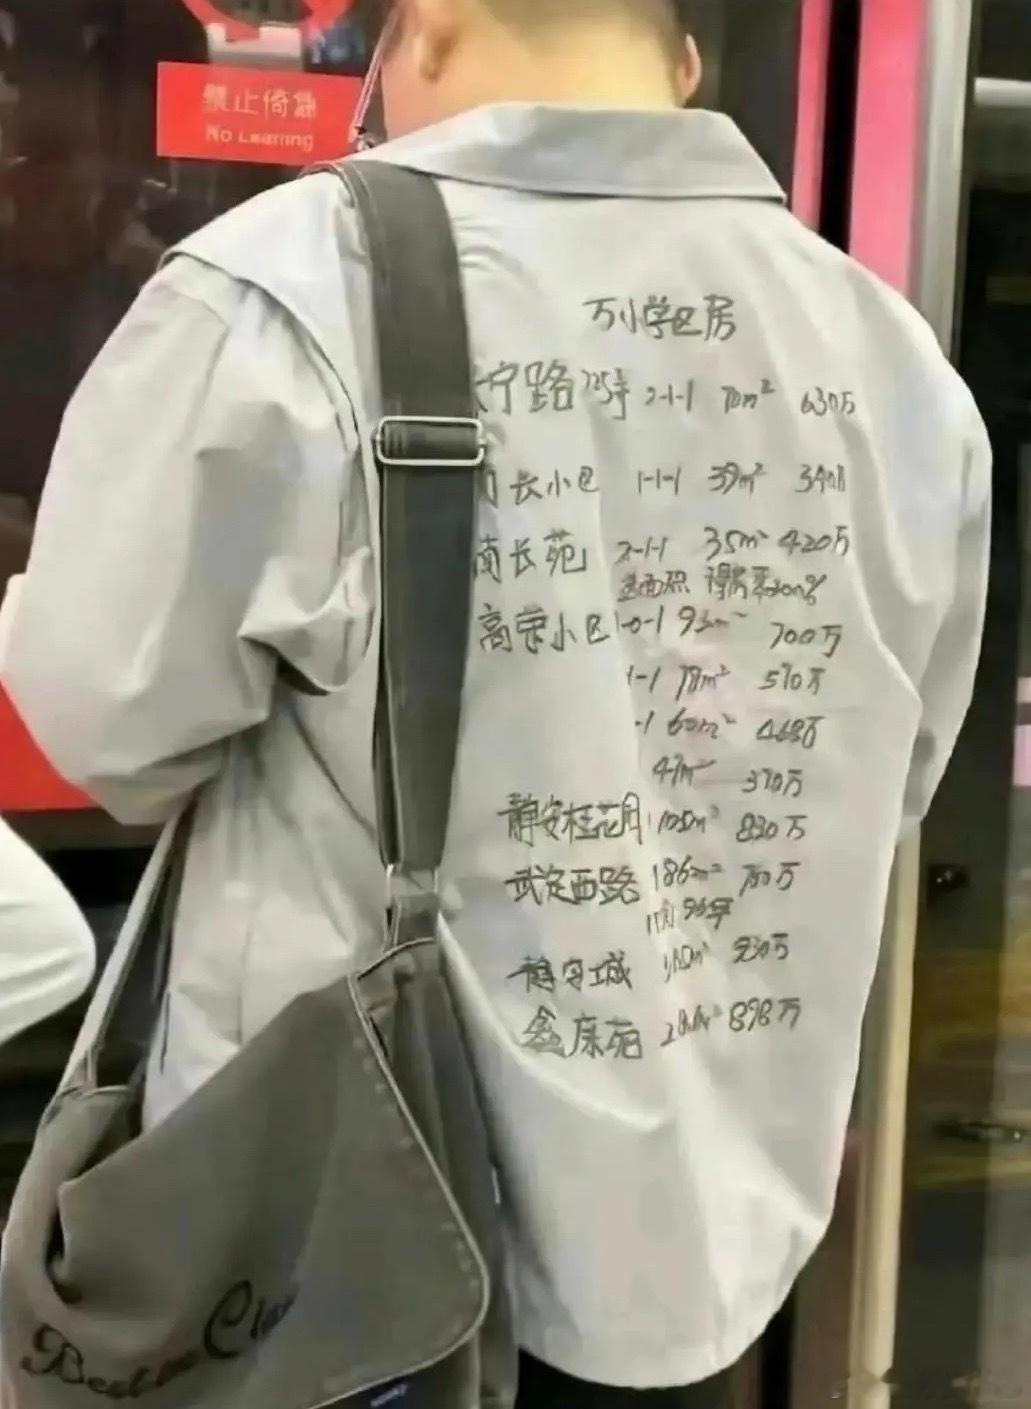 禁止倚靠
No Leaning
万小学区房
宁路 725弄 2-1-1 70m² 630万
长小区 1-1-1 39m² 340万
南长苑 2-1-1 35m² 420万
得房率200%
高荣小区 1-0-1 93m² 700万
1-1 78m² 570万
-1 60m² 468万
47m² 370万
静安桂花园 105m² 830万
武定西路 186m² 780万
96年
静安城 930万
鑫康苑 898万